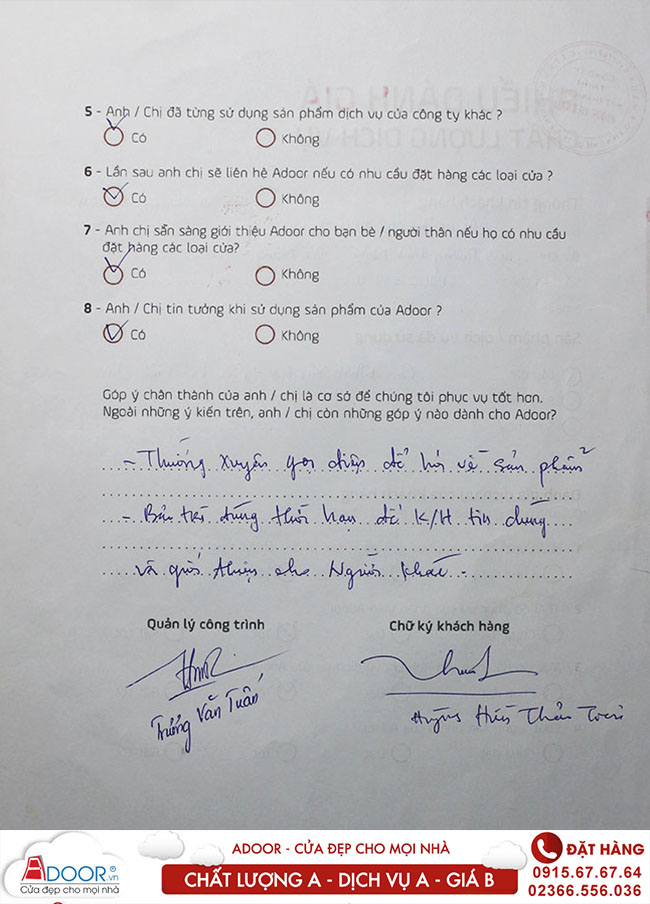 5 - Anh / Chị đã từng sử dụng sản phẩm dịch vụ của công ty khác ?
Có Không
6 - Lần sau anh chị sẽ liên hệ Adoor nếu có nhu cầu đặt hàng các loại cửa ?
Có Không
7 - Anh chị sẵn sàng giới thiệu Adoor cho bạn bè / người thân nếu họ có nhu cầu
đặt hàng các loại cửa?
Có Không
8 - Anh / Chị tin tưởng khi sử dụng sản phẩm của Adoor ?
Có Không
Góp ý chân thành của anh / chị là cơ sở để chúng tôi phục vụ tốt hơn.
Ngoài những ý kiến trên, anh / chị còn những góp ý nào dành cho Adoor?
- Thường xuyên gọi điện để hỏi về sản phẩm
- Bảo trì đúng thời hạn để K/H tin dùng
và giới thiệu cho Người khác.
Quản lý công trình Chữ ký khách hàng
Trương Văn Tuấn
ADOOR.vn
Cửa đẹp cho mọi nhà
ADOOR - CỬA ĐẸP CHO MỌI NHÀ
CHẤT LƯỢNG A - DỊCH VỤ A - GIÁ B
ĐẶT HÀNG
0915.67.67.64
02366.556.036